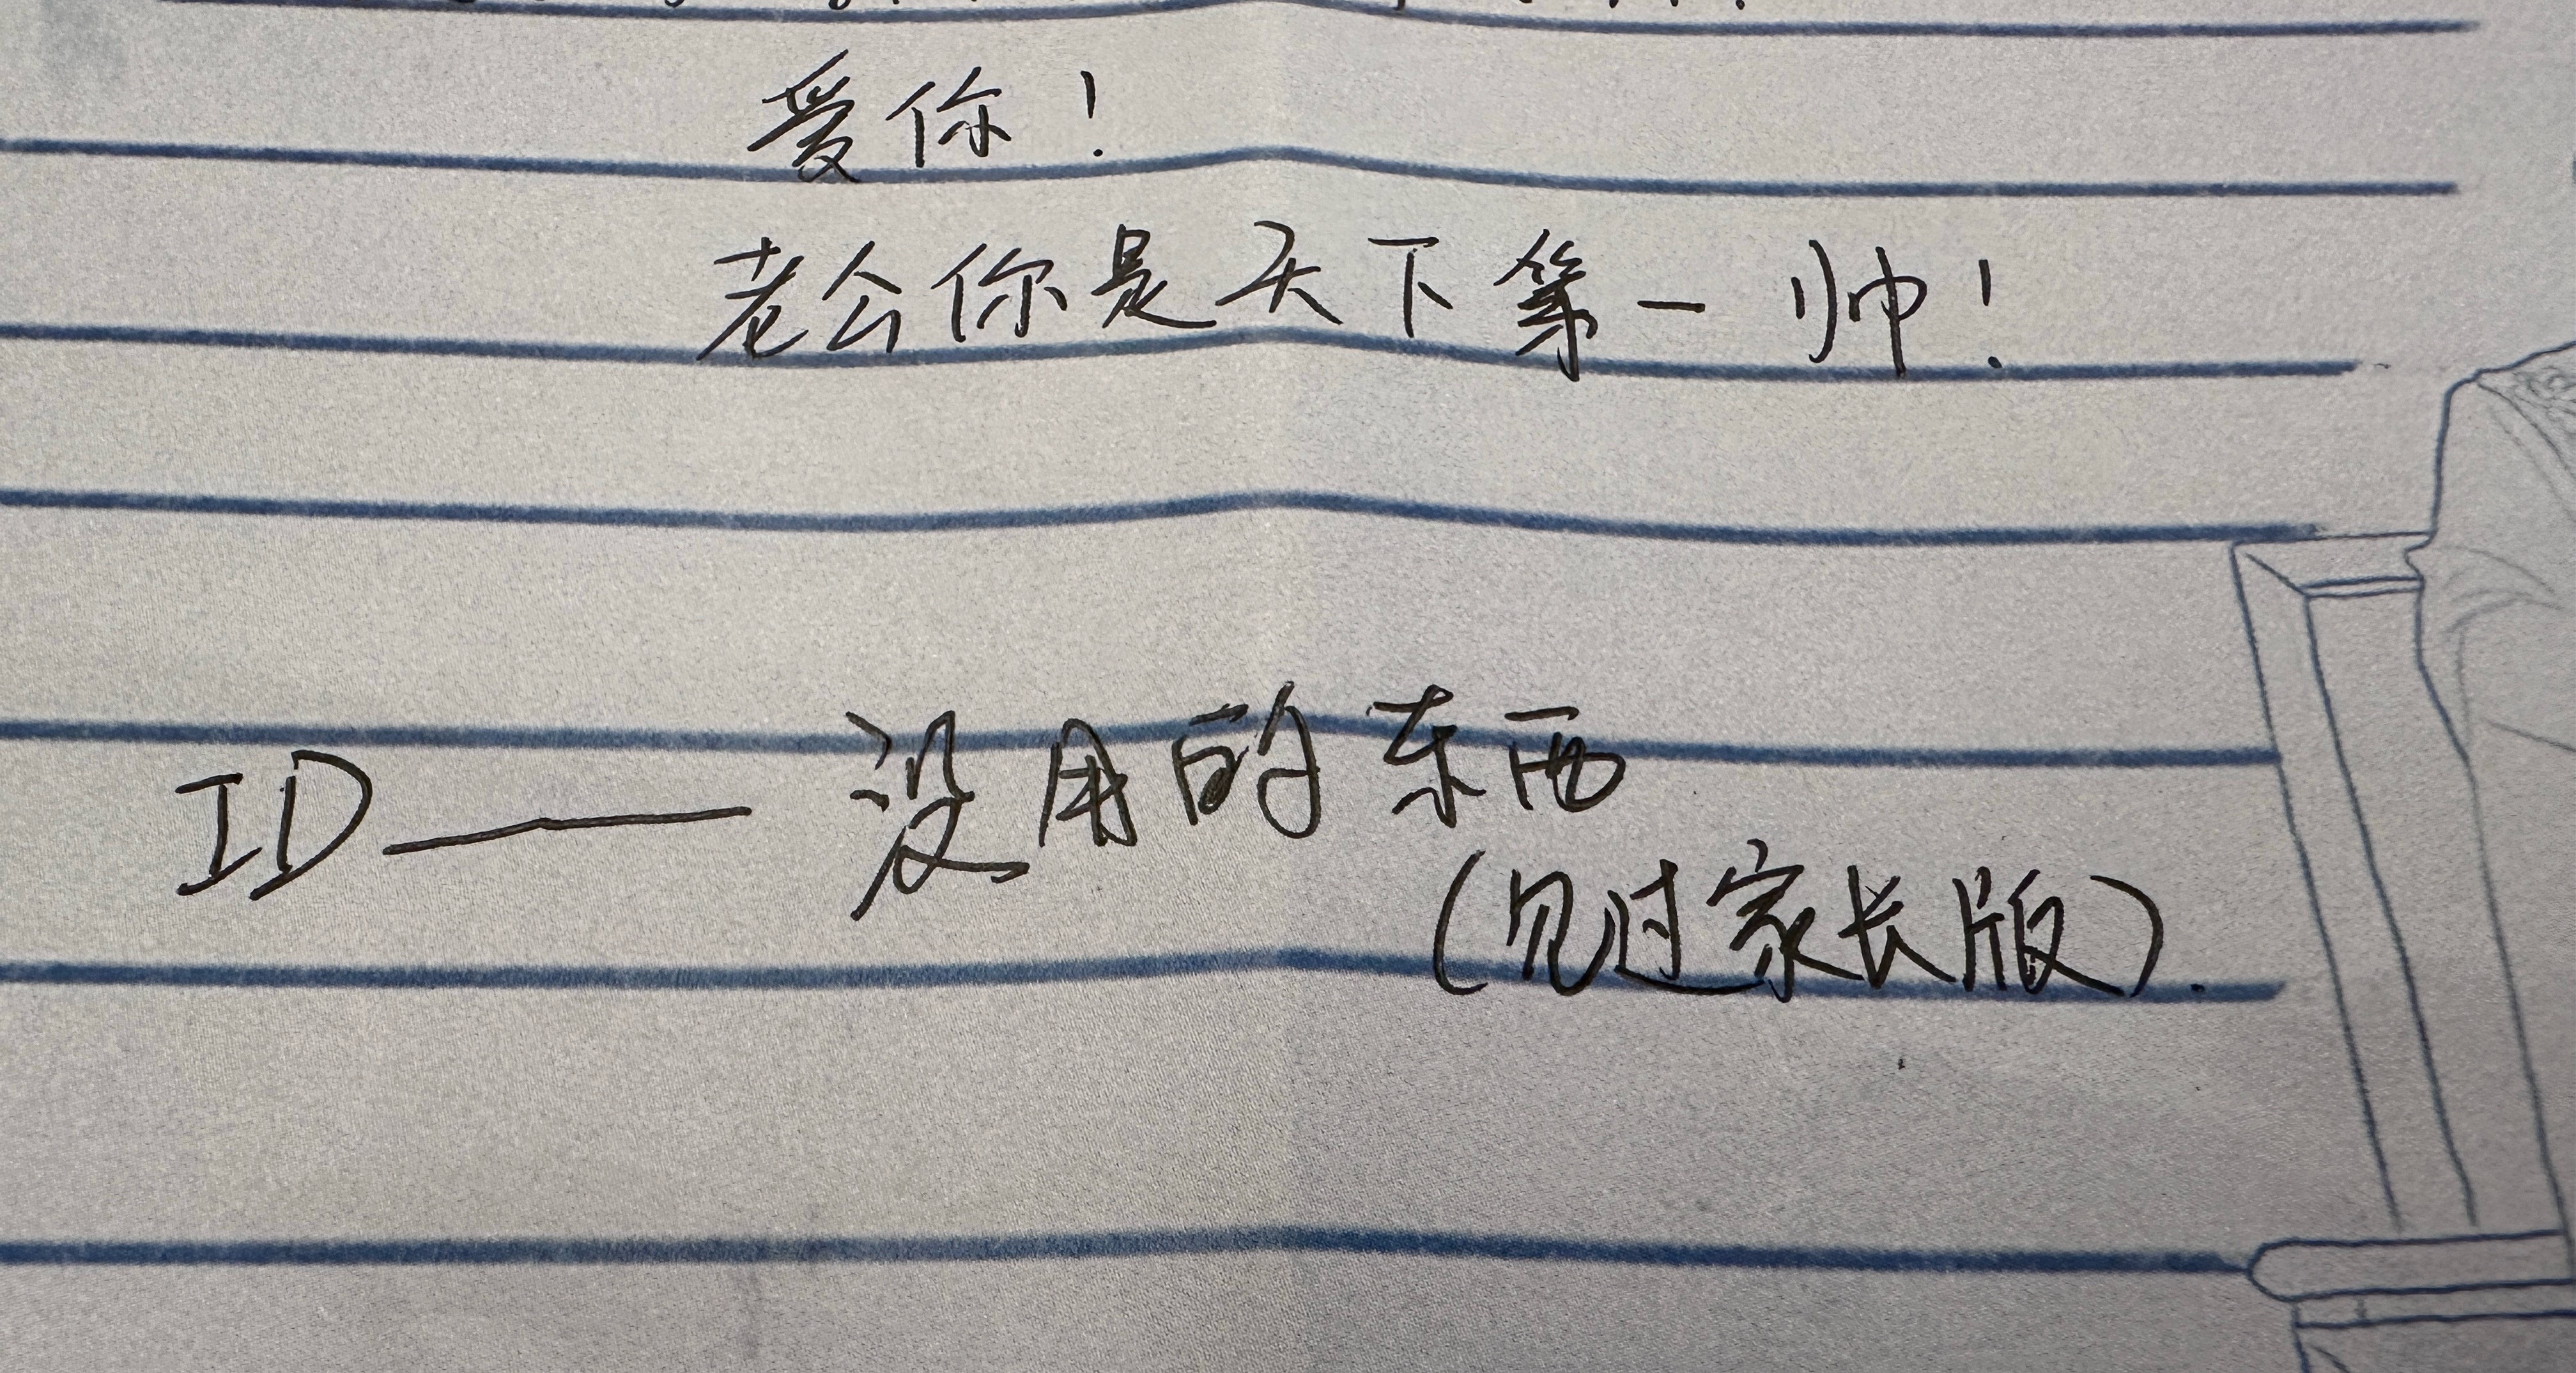 爱你！
老公你是天下第一帅！
ID——没用的东西
（见过家长版）.